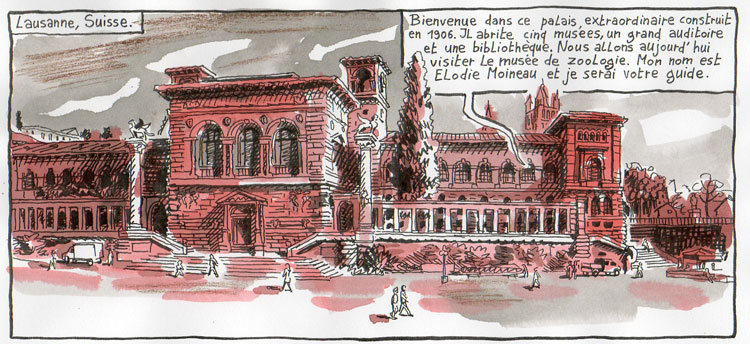 Lausanne, Suisse.-
Bienvenue dans ce palais extraordinaire construit
en 1906. Il abrite cinq musées, un grand auditoire
et une bibliothèque. Nous allons aujourd'hui
visiter Le musée de zoologie. Mon nom est
ELodie Moineau et je serai votre guide.